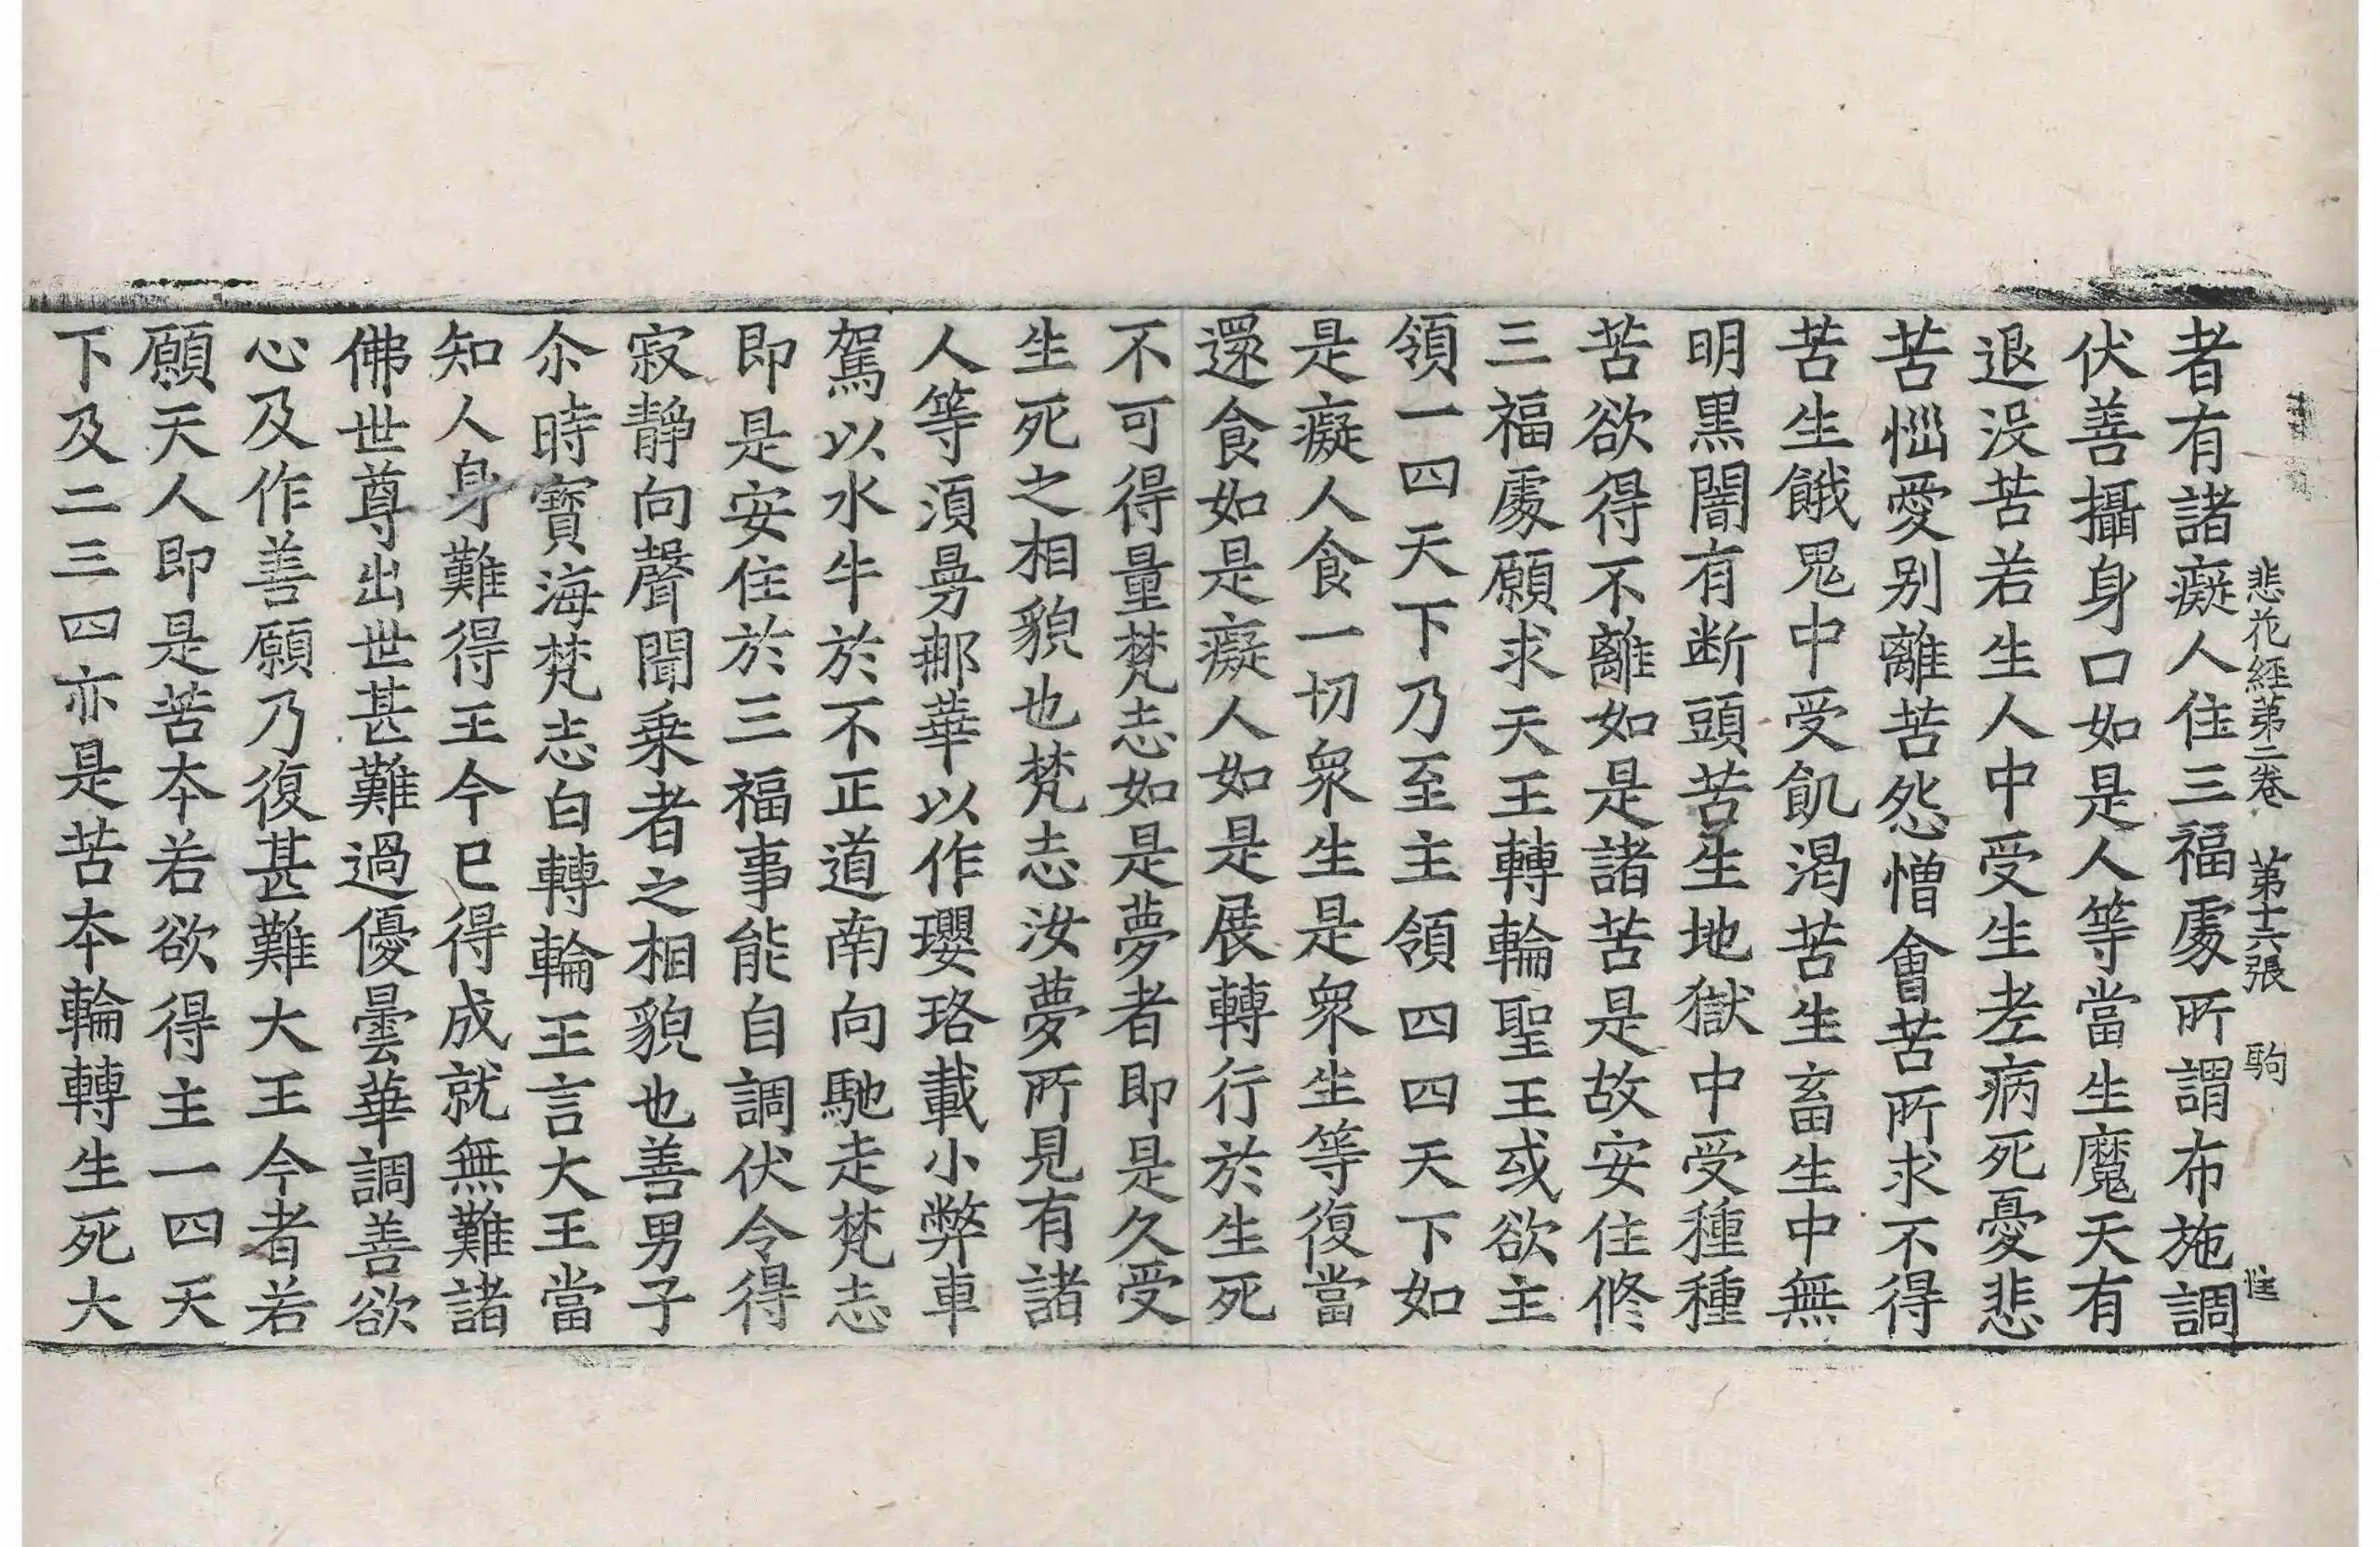 悲花經第二卷 第十六張 駒 惟
者有諸癡人住三福處所謂布施調
伏善攝身口如是人等當生魔天有
退沒苦若生人中受生老病死憂悲
苦惱愛別離苦怨憎會苦所求不得
苦生餓鬼中受飢渴苦生畜生中無
明黑闇有断頭苦生地獄中受種種
苦欲得不離如是諸苦是故安住修
三福處願求天王轉輪聖王或欲主
領一四天下乃至主領四四天下如
是癡人食一切衆生是衆生等復當
還食如是癡人如是展轉行於生死
不可得量梵志如是夢者即是久受
生死之相貌也梵志汝夢所見有諸
人等須曼那華以作瓔珞載小弊車
駕以水牛於不正道南向馳走梵志
即是安住於三福事能自調伏令得
寂靜向聲聞乗者之相貌也善男子
尒時寶海梵志白轉輪王言大王當
知人身難得王今已得成就無難諸
佛世尊出世甚難過優曇華調善欲
心及作善願乃復甚難大王今者若
願天人即是苦夲若欲得主一四天
下及二三四亦是苦夲輪轉生死大